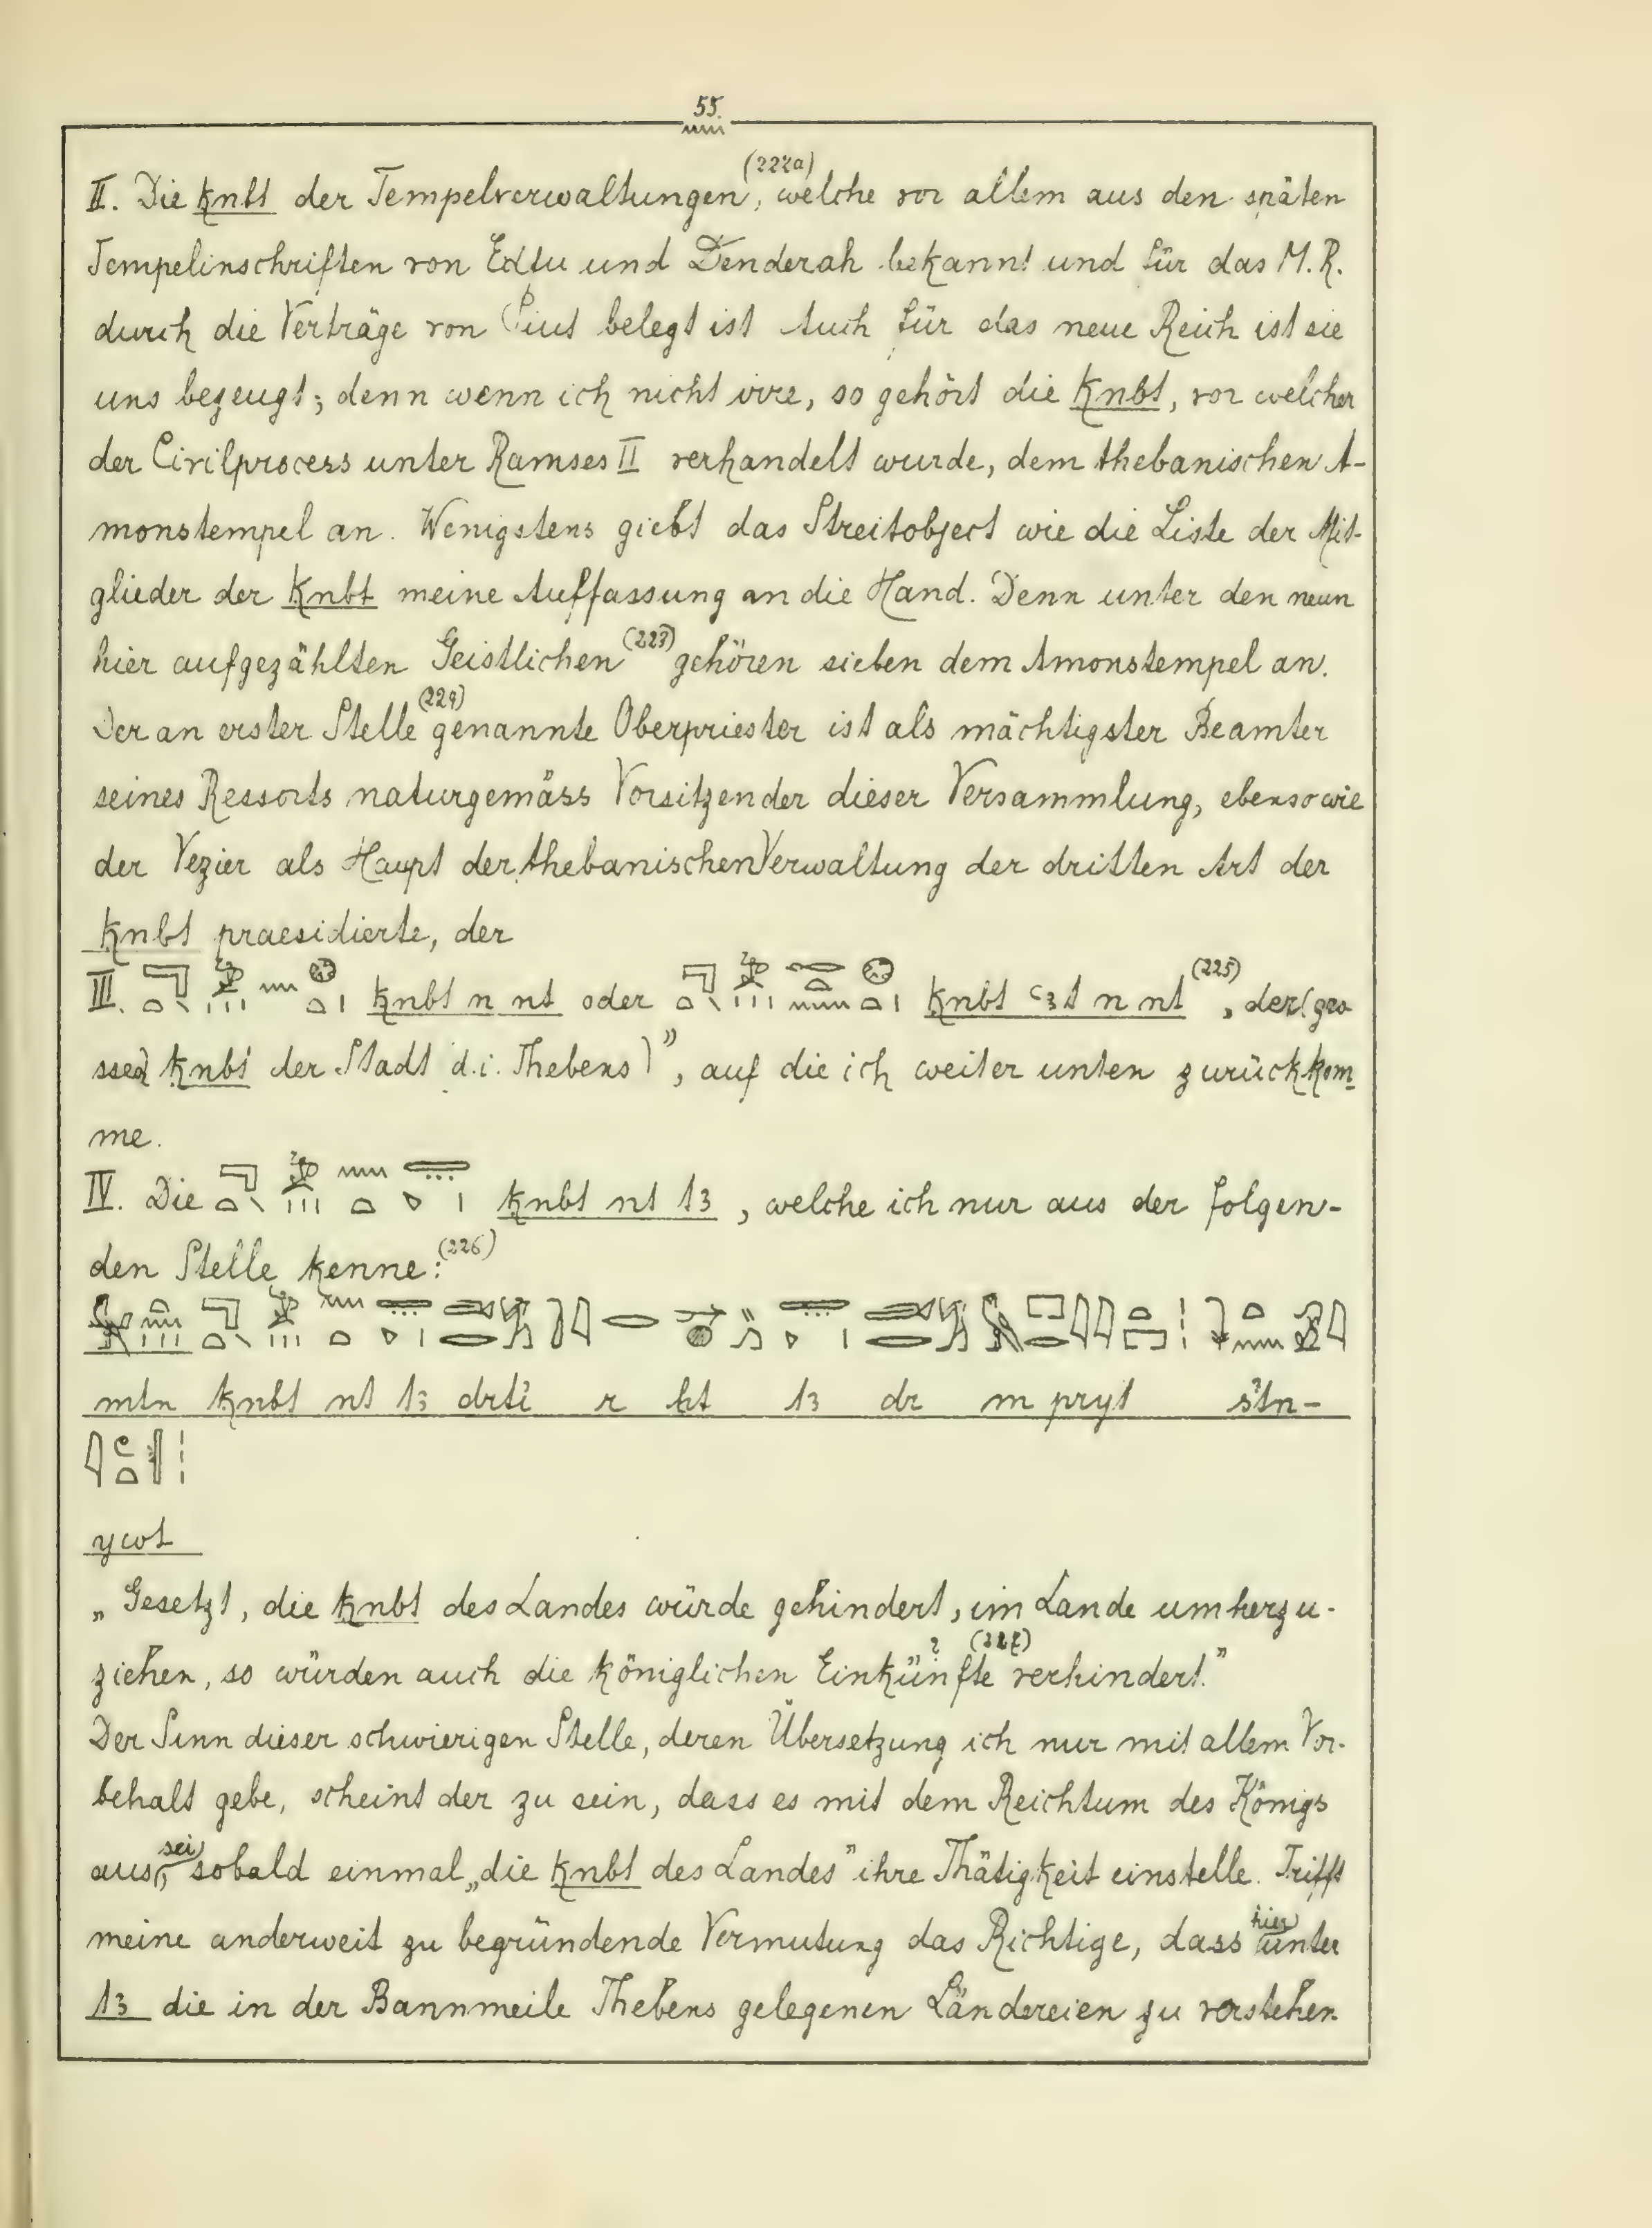 55.
II. Die ḳnbt der Tempelverwaltungen,(222a) welche vor allem aus den späten
Tempelinschriften von Edfu und Denderah bekannt und für das M.R.
durch die Verträge von Siut belegt ist Auch für das neue Reich ist sie
uns bezeugt; denn wenn ich nicht irre, so gehört die ḳnbt, vor welcher
der Civilprocess unter Ramses II verhandelt wurde, dem thebanischen A-
monstempel an. Wenigstens giebt das Streitobject wie die Liste der Mit-
glieder der ḳnbt meine Auffassung an die Hand. Denn unter den neun
hier aufgezählten Geistlichen(223) gehören sieben dem Amonstempel an.
Der an erster Stelle(224) genannte Oberpriester ist als mächtigster Beamter
seines Ressorts naturgemäss Vorsitzender dieser Versammlung, ebenso wie
der Vezier als Haupt der thebanischen Verwaltung der dritten Art der
ḳnbt praesidierte, der
III. ḳnbt n nt oder ḳnbt ꜥꜣt n nt(225), der (gro
ssen) ḳnbt der Stadt d.i. Thebens)", auf die ich weiter unten zurückkom-
me.
IV. Die ḳnbt nt tꜣ, welche ich nur aus der folgen-
den Stelle kenne:(226)
mtn ḳnbt nt tꜣ drti r ḫt tꜣ dr m pryt stn-
ywt
„Gesetzt, die ḳnbt des Landes würde gehindert, im Lande umherzu-
ziehen, so würden auch die königlichen Einkünfte?(227) verhindert."
Der Sinn dieser schwierigen Stelle, deren Übersetzung ich nur mit allem Vor-
behalt gebe, scheint der zu sein, dass es mit dem Reichtum des Königs
aus sei, sobald einmal „die ḳnbt des Landes" ihre Thätigkeit einstelle. Trifft
meine anderweit zu begründende Vermutung das Richtige, dass hier unter
tꜣ die in der Bannmeile Thebens gelegenen Ländereien zu verstehen